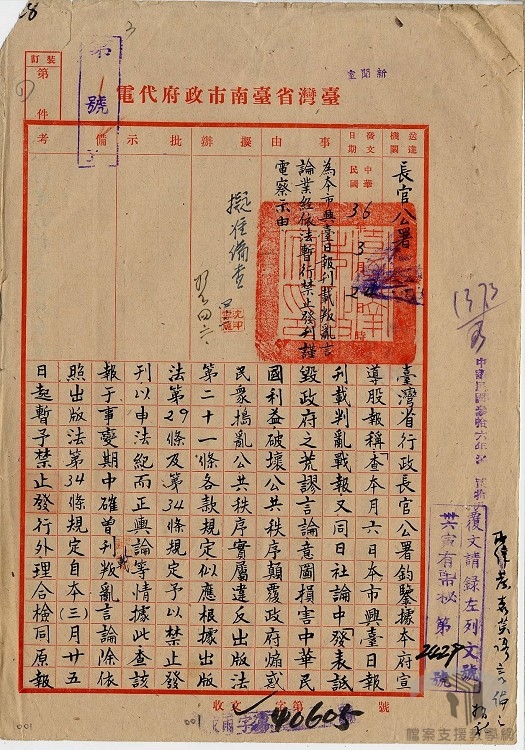 臺灣省臺南市政府代電
新聞室
裝訂
第 件
第 1 號
送達機關
長官公署
發文日期
中華民國 36 年 3 月 2 時
事由
為本市興臺日報刊載叛亂言
論業經依法暫行禁止發刊謹
電察示由
擬辦
擬准備查
批示
備考
臺灣省行政長官公署鈞鑒據本府宣
導股報稱「查本月六日本市興臺日報
刊載判亂戰報又同日社論中發表詆
毀政府之荒謬言論意圖損害中華民
國利益破壞公共秩序顛覆政府煽惑
民衆搗亂公共秩序實屬違反出版法
第二十一條各款規定似應根據出版
法第29條及第34條規定予以禁止發
刊以申法紀而正輿論等情據此查該
報于事變期中確曾刊載叛亂言論除依
照出版法第34條規定自本(三)月廿五
日起暫予禁止發行外理合檢同原報
復文請錄左列文號
府秘第 2429 號
收文 字第 號
40605
001
檔案支援教學網